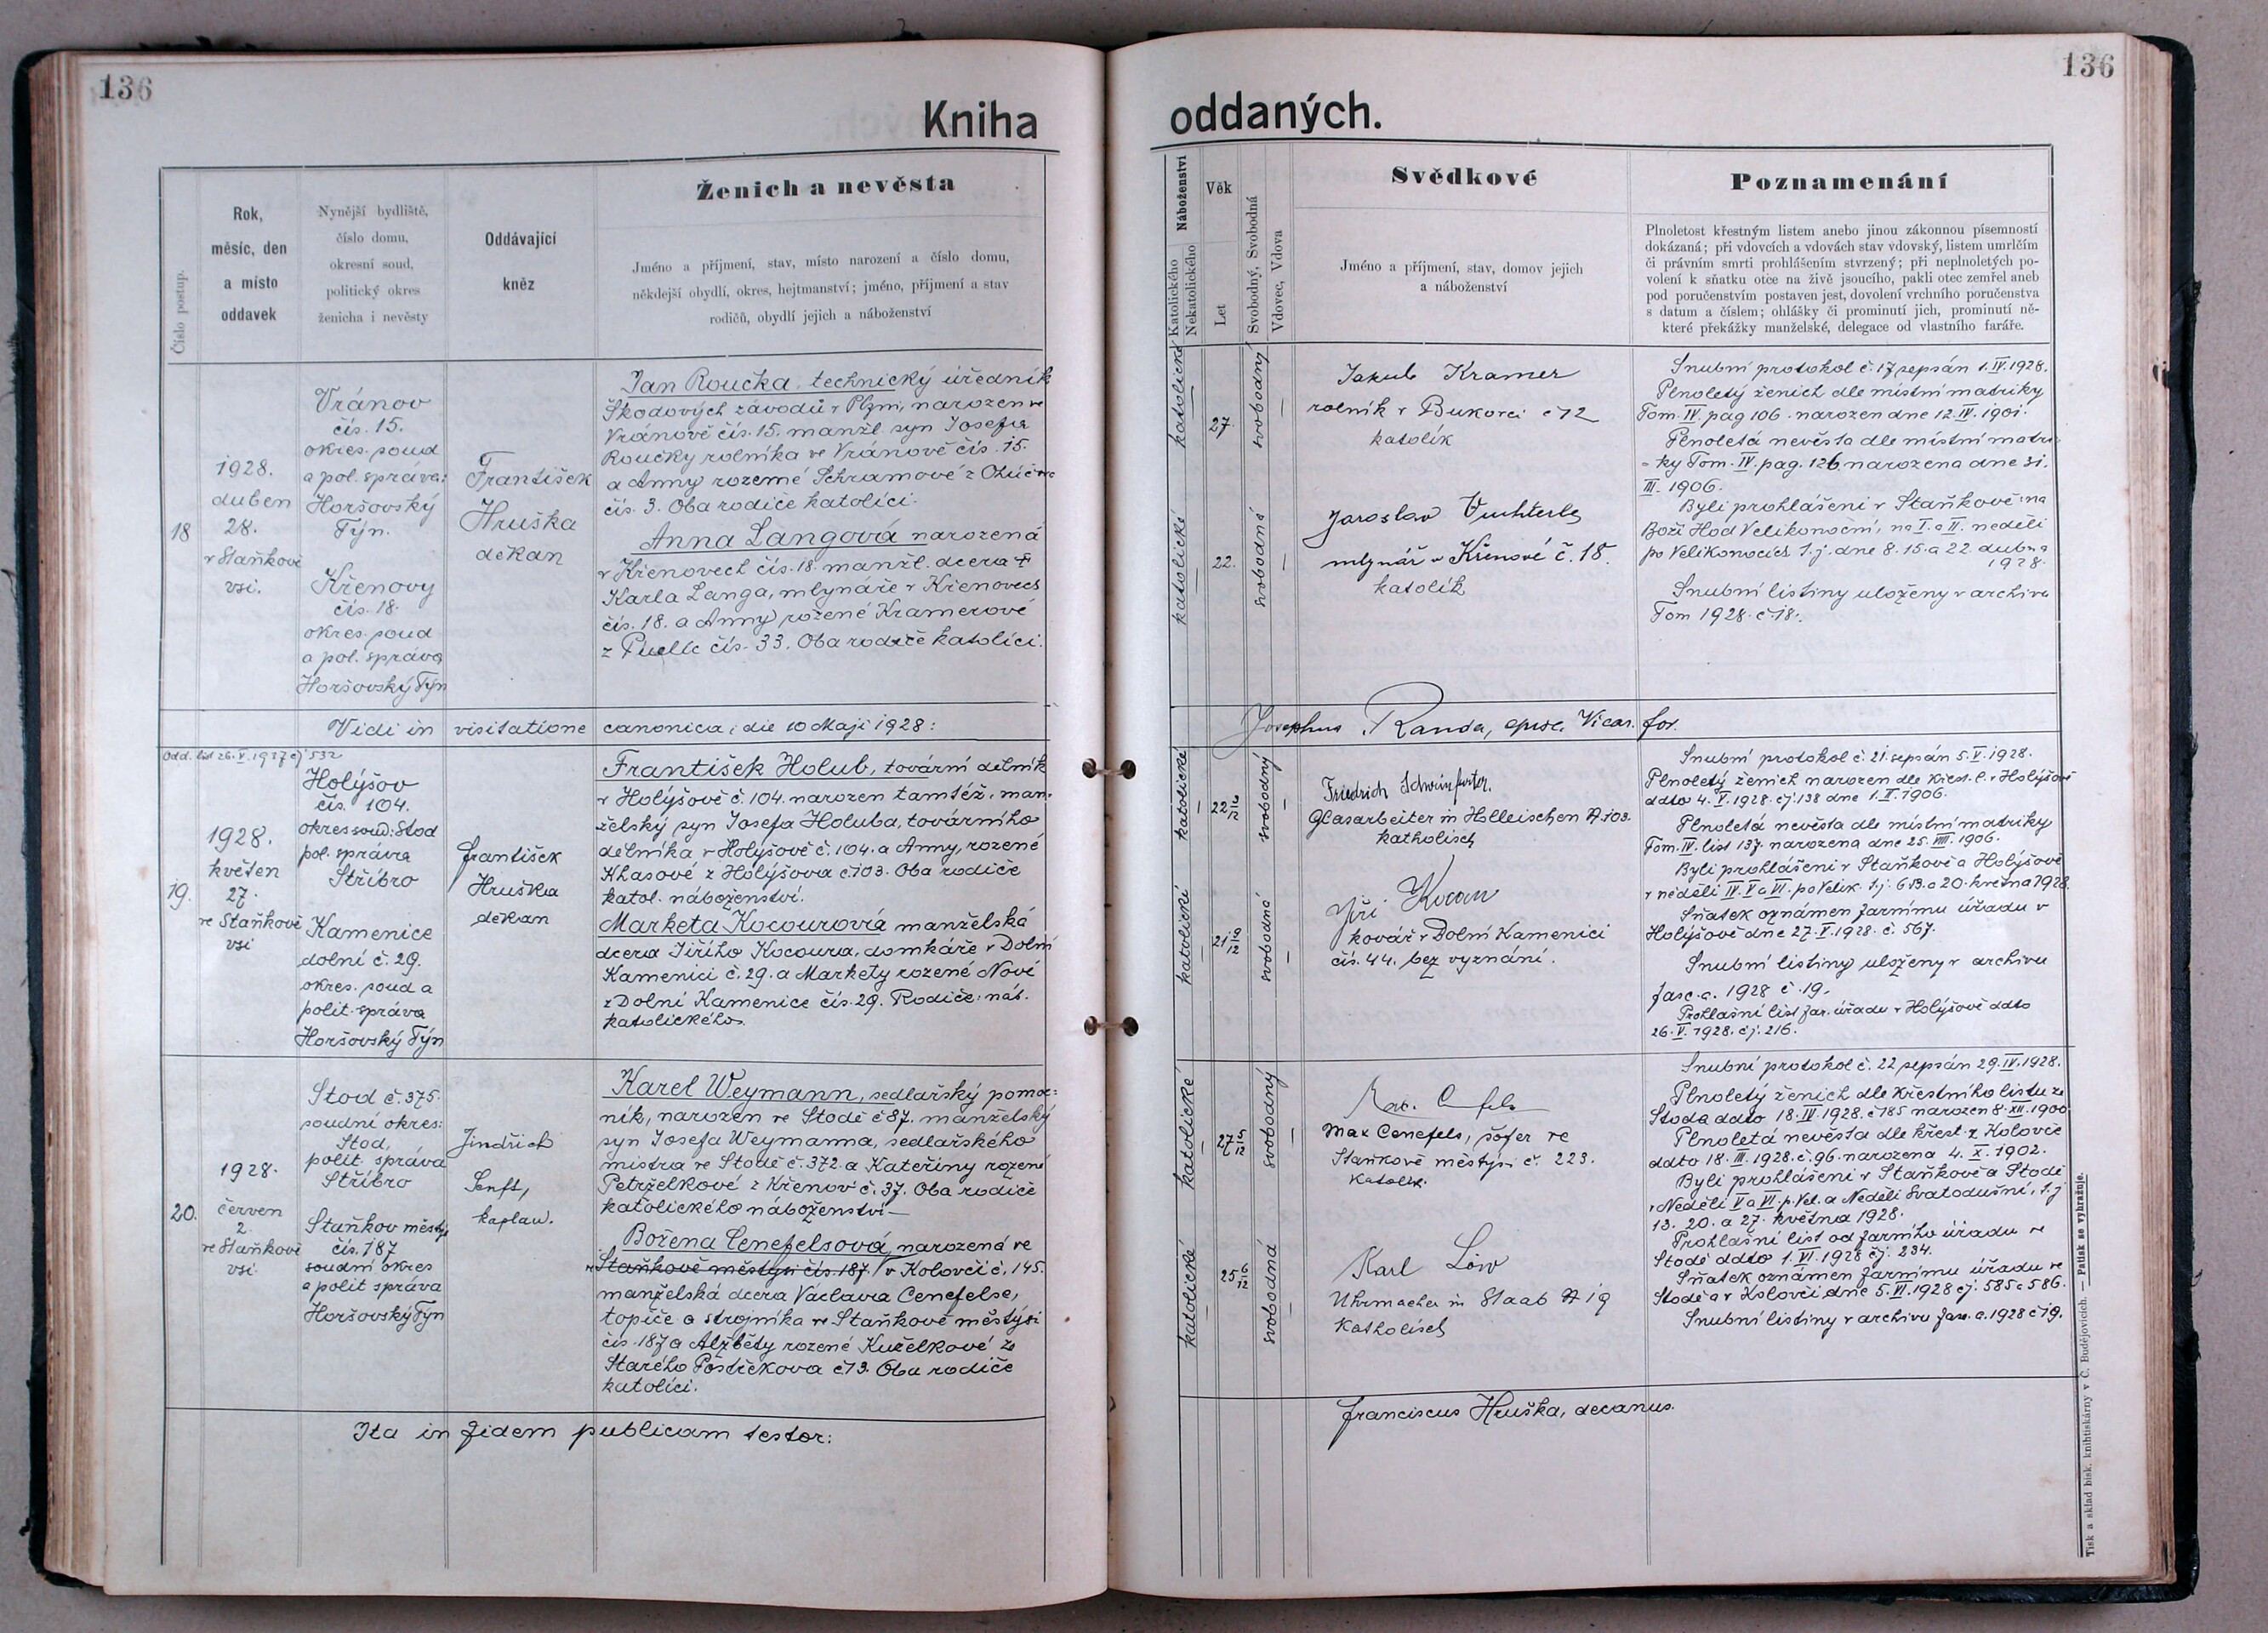 136
136
Kniha
oddaných.
Číslo postup.
Rok,
měsíc, den
a místo
oddavek
Nynější bydliště,
číslo domu,
okresní soud,
politický okres
ženicha i nevěsty
Oddávající
kněz
Ženich a nevěsta
Jméno a příjmení, stav, místo narození a číslo domu,
někdejší obydlí, okres, hejtmanství; jméno, příjmení a stav
rodičů, obydlí jejich a náboženství
Náboženství
Katolického
Nekatolického
Věk
Let
Svobodný, Svobodná
Vdovec, Vdova
Svědkové
Jméno a příjmení, stav, domov jejich
a náboženství
Poznamenání
Plnoletost křestným listem anebo jinou zákonnou písemností
dokázaná; při vdovcích a vdovách stav vdovský, listem umrlčím
či právním smrti prohlášením stvrzený; při neplnoletých po-
volení k sňatku otce na živě jsoucího, pakli otec zemřel aneb
pod poručenstvím postaven jest, dovolení vrchního poručenstva
s datum a číslem; ohlášky či prominutí jich, prominutí ně-
které překážky manželské, delegace od vlastního faráře.
18
1928.
duben
28.
v Staňkově
vsi.
Vránov
čís. 15.
okres. soud
a pol. správa:
Horšovský
Týn.
Křenovy
čís. 18.
okres. soud
a pol. správa
Horšovský Týn
František
Hruška
děkan
Jan Roučka, technický úředník
Škodových závodů v Plzni, narozen ve
Vránově čís. 15. manžl. syn Josefa
Roučky rolníka ve Vránově čís. 15.
a Anny rozené Schramové z
čís. 3. Oba rodiče katolíci.
Anna Langová narozená
v Křenovech čís. 18. manžl. dcera †
Karla Langa, mlynáře v Křenovech
čís. 18. a Anny rožené Kramerové
z čís. 33. Oba rodiče katolíci.
katolické
27.
svobodný
katolické
22.
svobodná
Jakub Kramer
rolník v Bukovci č 12
katolík
Jaroslav
mlynář v Křenové č. 18.
katolík
Snubní protokol č. 17 sepsán 1. IV. 1928.
Plnoletý ženich dle místní matriky
Tom. IV. pag 106. narozen dne 12. IV. 1901.
Plnoletá nevěsta dle místní matri-
- ky Tom. IV. pag. 126 narozena dne 31.
III. 1906.
Byli prohlášeni v Staňkově: na
Boží Hod Velikonoční, na I. a II. neděli
po Velikonocích t. j. dne 8. 15. a 22. dubna
1928.
Snubní listiny uloženy v archivu
Tom 1928. č. 18.
Vidi in visitatione canonica, die 10 Maji 1928:
Josephus Randa, Vicar. for.
Odd. list 26. V. 1937 čj 532
19.
1928.
květen
27.
ve Staňkově
vsi
Holýšov
čís. 104.
okres soud: Stod
pol. správa
Stříbro
Kamenice
dolní č. 29.
okres. soud a
polit. správa
Horšovský Týn
František
Hruška
děkan
František Holub, tovární dělník
v Holýšově č. 104. narozen tamtéž, man-
želský syn Josefa Holuba, továrního
dělníka v Holýšově č. 104. a Anny, rozené
Khasové z Holýšova č 103. Oba rodiče
katol. náboženství.
Marketa Kocourová manželská
dcera Jiřího Kocoura, domkáře v Dolní
Kamenici č. 29. a Markety rozené Nové
z Dolní Kamenice čís. 29. Rodiče: náb.
katolického.
katolické
22
svobodný
katolické
21 9/12
svobodná
Friedrich
Glasarbeiter in Holleischen N 103.
katholisch
Jiří
kovář v Dolní Kamenici
čís. 44. bez vyznání.
Snubní protokol č. 21 sepsán 5. V. 1928.
Plnoletý ženich narozen dle křest. l. v Holýšově
ddto 4. V. 1928. čj. 138 dne 1. II. 1906.
Plnoletá nevěsta dle místní matriky
Tom. IV. list 137. narozena dne 25. VIII. 1906.
Byli prohlášeni v Staňkově a Holýšově
v neděli IV. V a VI. po Velik. t. j. 6 13. a 20. května 1928.
Sňatek oznámen farnímu úřadu v
Holýšově dne 27. V. 1928. č. 567.
Snubní listiny uloženy v archivu
fasc. a. 1928 č. 19.
Prohlašní list far. úřadu v Holýšově ddto
26. V. 1928. čj. 216.
20.
1928.
červen
2.
ve Staňkově
vsi.
Stod č. 375.
soudní okres:
Stod,
polit. správa
Stříbro
Staňkov městys
čís. 187
soudní okres
a polit správa
Horšovský Týn
Jindřich
Senft,
kaplan.
Karel Weymann, sedlařský pomoc-
ník, narozen ve Stodě č 87. manželský
syn Josefa Weymanna, sedlařského
mistra ve Stodě č. 372. a Kateřiny rozené
Petrželkové z Křenov č. 37. Oba rodiče
katolického náboženství
Božena Cenefelsová, narozená ve
Staňkově městysi čís. 187. v Kolovči č. 145.
manželská dcera Václava Cenefelse,
topiče a strojníka ve Staňkově městysi
čís. 187 a Alžběty rozené Kuželkové ze
Starého Postřekova č 13. Oba rodiče
katolíci.
katolické
27 5/12
svobodný
katolické
25
svobodná
Max Cenefels, šofer ve
Staňkově městysi č. 223.
Katolík.
Karl Löw
Uhrmacher in Staab N 19
Katholisch
Snubní protokol č. 22 sepsán 29. IV. 1928.
Plnoletý ženich dle křestního listu ze
Stoda ddto 18. IV. 1928. č 185 narozen 8. XII. 1900.
Plnoletá nevěsta dle křest. z Kolovče
ddto 18. III. 1928. č. 96. narozena 4. X. 1902.
Byli prohlášeni v Staňkově a Stodě
v Neděli V a VI. p. Vel. a Neděli Svatodušní, t. j.
13. 20. a 27. května 1928.
Prohlašní list od farního úřadu ve
Stodě ddto 1. VI. 1928 čj. 234.
Sňatek oznámen farnímu úřadu ve
Stodě a v Kolovči dne 5. VI. 1928 čj. 585 a 586.
Snubní listiny v archivu fasc. a. 1928 č 19.
Ita in fidem publicam testor:
Franciscus Hruška, decanus.
Tisk a sklad bisk. knihtiskárny v Č. Budějovicích. — Patisk se vyhražuje.